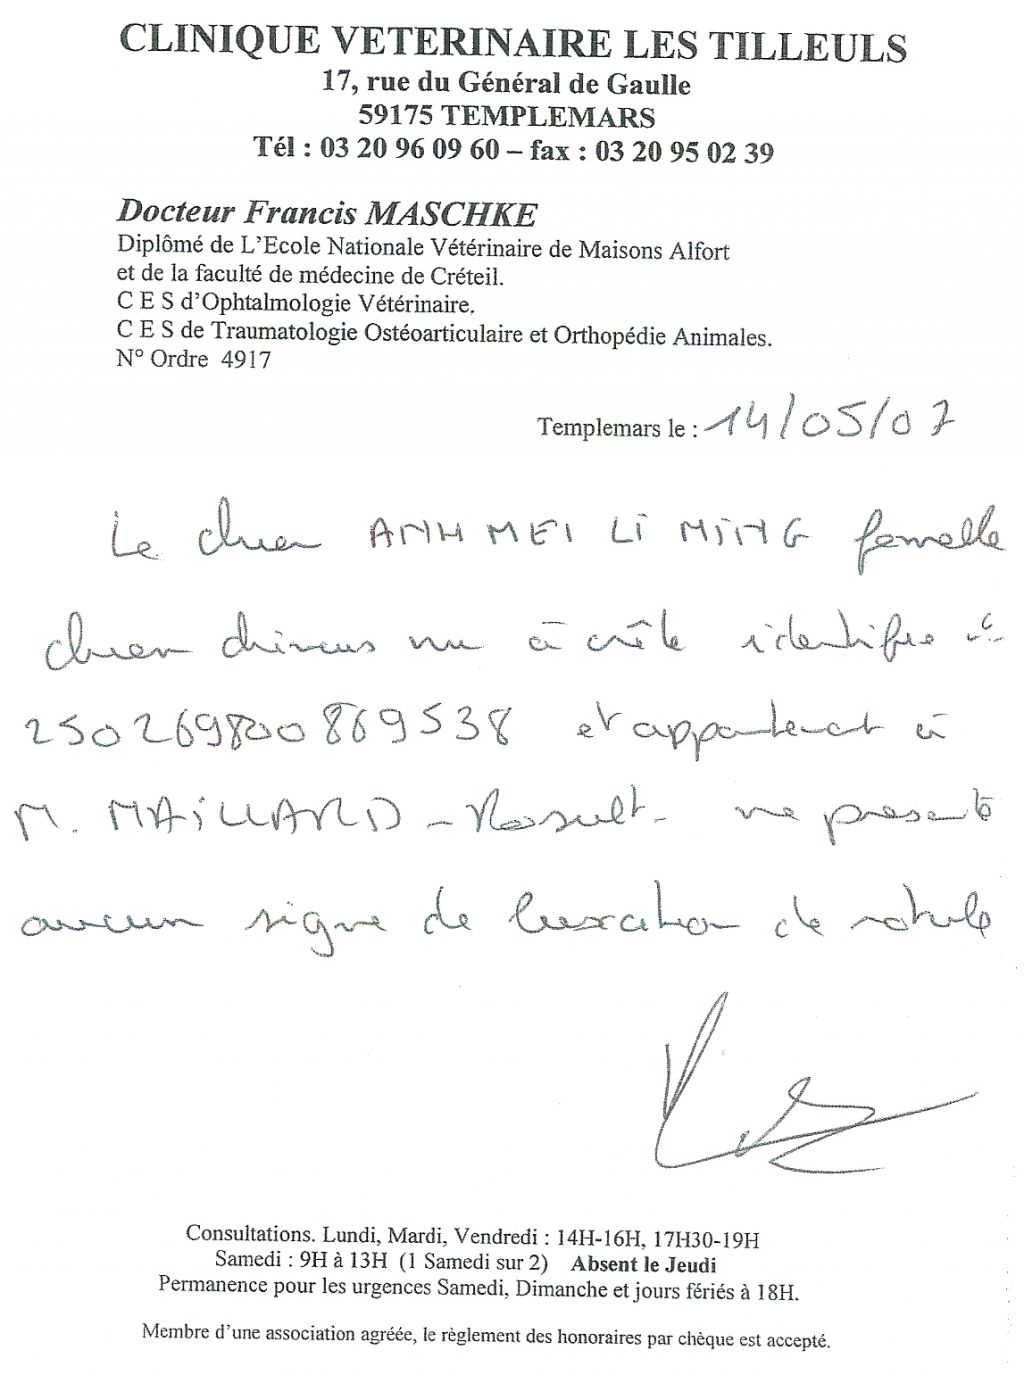 CLINIQUE VETERINAIRE LES TILLEULS
17, rue du Général de Gaulle
59175 TEMPLEMARS
Tél : 03 20 96 09 60 – fax : 03 20 95 02 39
Docteur Francis MASCHKE
Diplômé de L'Ecole Nationale Vétérinaire de Maisons Alfort
et de la faculté de médecine de Créteil.
C E S d'Ophtalmologie Vétérinaire.
C E S de Traumatologie Ostéoarticulaire et Orthopédie Animales.
N° Ordre 4917
Templemars le : 14/05/07
Le chien ANH MEI LI MING femelle
chien chinois nu à crête identifié
250269800869538 et appartenant à
M. MAILLARD - ne présente
aucun signe de luxation de rotule
Consultations. Lundi, Mardi, Vendredi : 14H-16H, 17H30-19H
Samedi : 9H à 13H (1 Samedi sur 2) Absent le Jeudi
Permanence pour les urgences Samedi, Dimanche et jours fériés à 18H.
Membre d'une association agréée, le règlement des honoraires par chèque est accepté.